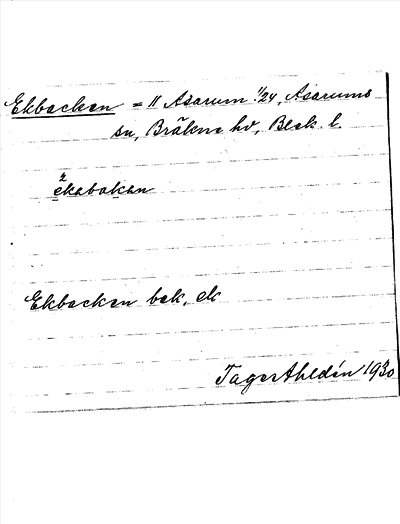 Ekbacken = 11 Asarum 1/24, Asarums
sn, Bräkne hd, Blek. l.
2
ekabakan
Ekbacken bek. ek
Tage Ahldén 1930